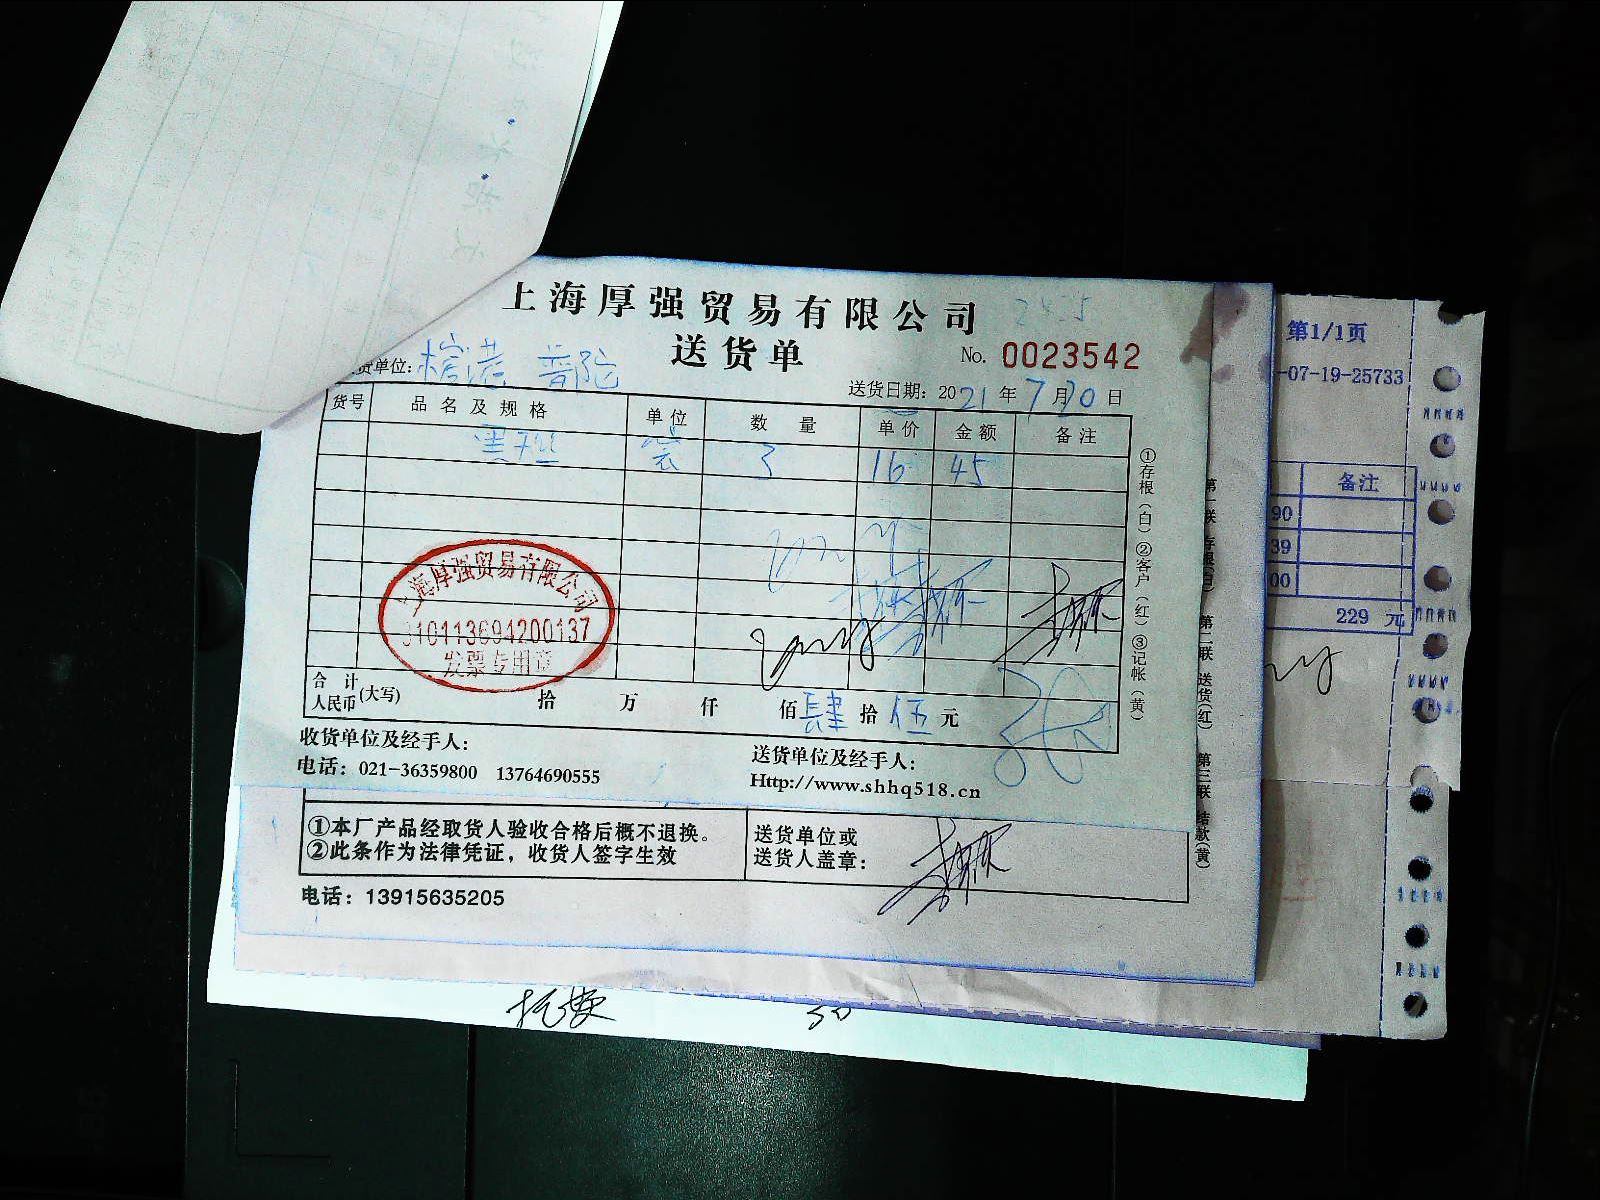 上海厚强贸易有限公司
送货单
No. 0023542
货单位: 普陀
送货日期: 2021年7月30日
货号 品名及规格 单位 数量 单价 金额 备注
袋 3 16 45
①存根（白）②客户（红）③记帐（黄）
上海厚强贸易有限公司
310113694200137
发票专用章
合计人民币(大写) 拾 万 仟 佰肆拾伍元
收货单位及经手人:
送货单位及经手人:
电话: 021-36359800 13764690555
Http://www.shhq518.cn
①本厂产品经取货人验收合格后概不退换。
②此条作为法律凭证，收货人签字生效
送货单位或
送货人盖章:
电话: 13915635205
第一联 存根(白) 第二联 送货(红) 第三联 结款(黄)
第1/1页
-07-19-25733
备注
90
39
00
229 元
50